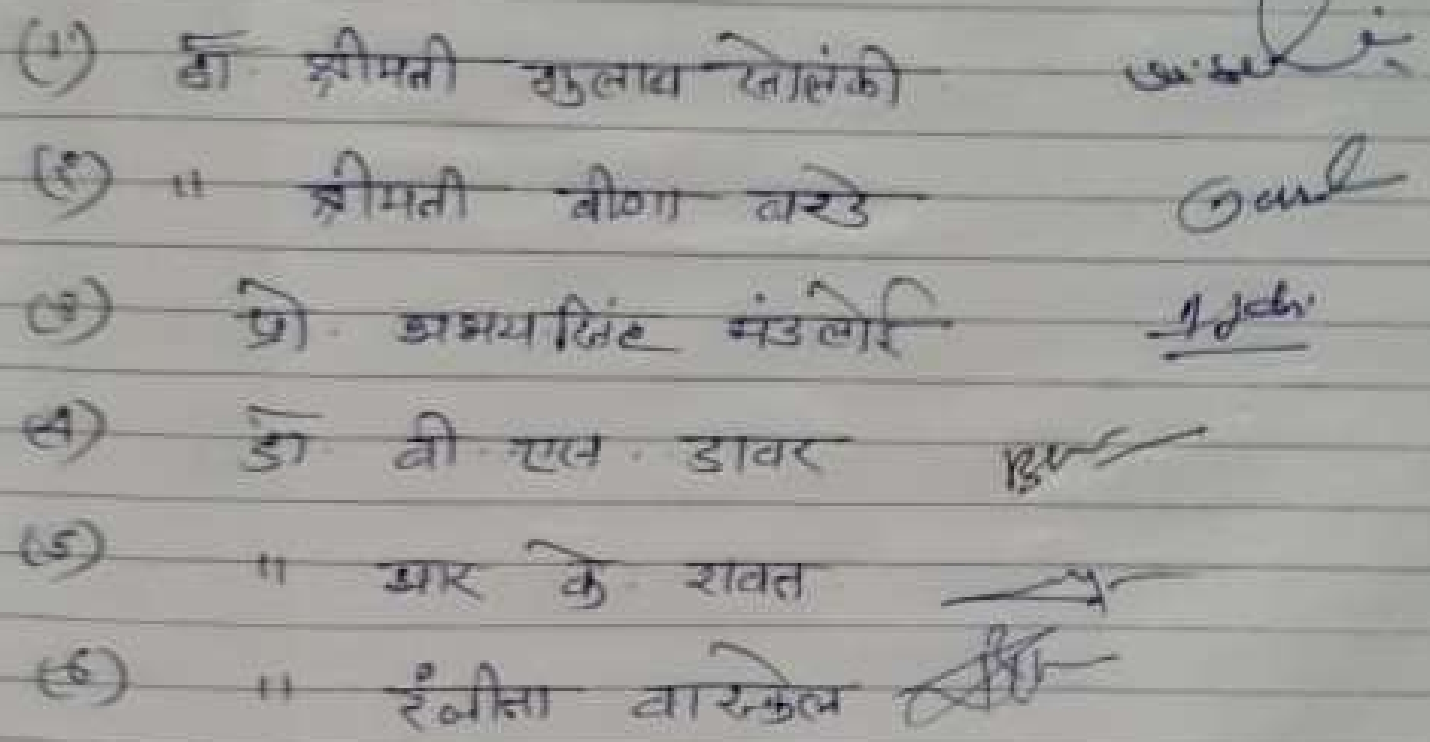 (1) डॉ. श्रीमती गुलाब सोलंकी
(2) " श्रीमती वीणा बरडे
(3) प्रो. अभयसिंह मंडलोई
(4) डॉ. बी. एल. डावर
(5) " आर के. रावत
(6) " रंजीता वास्केल